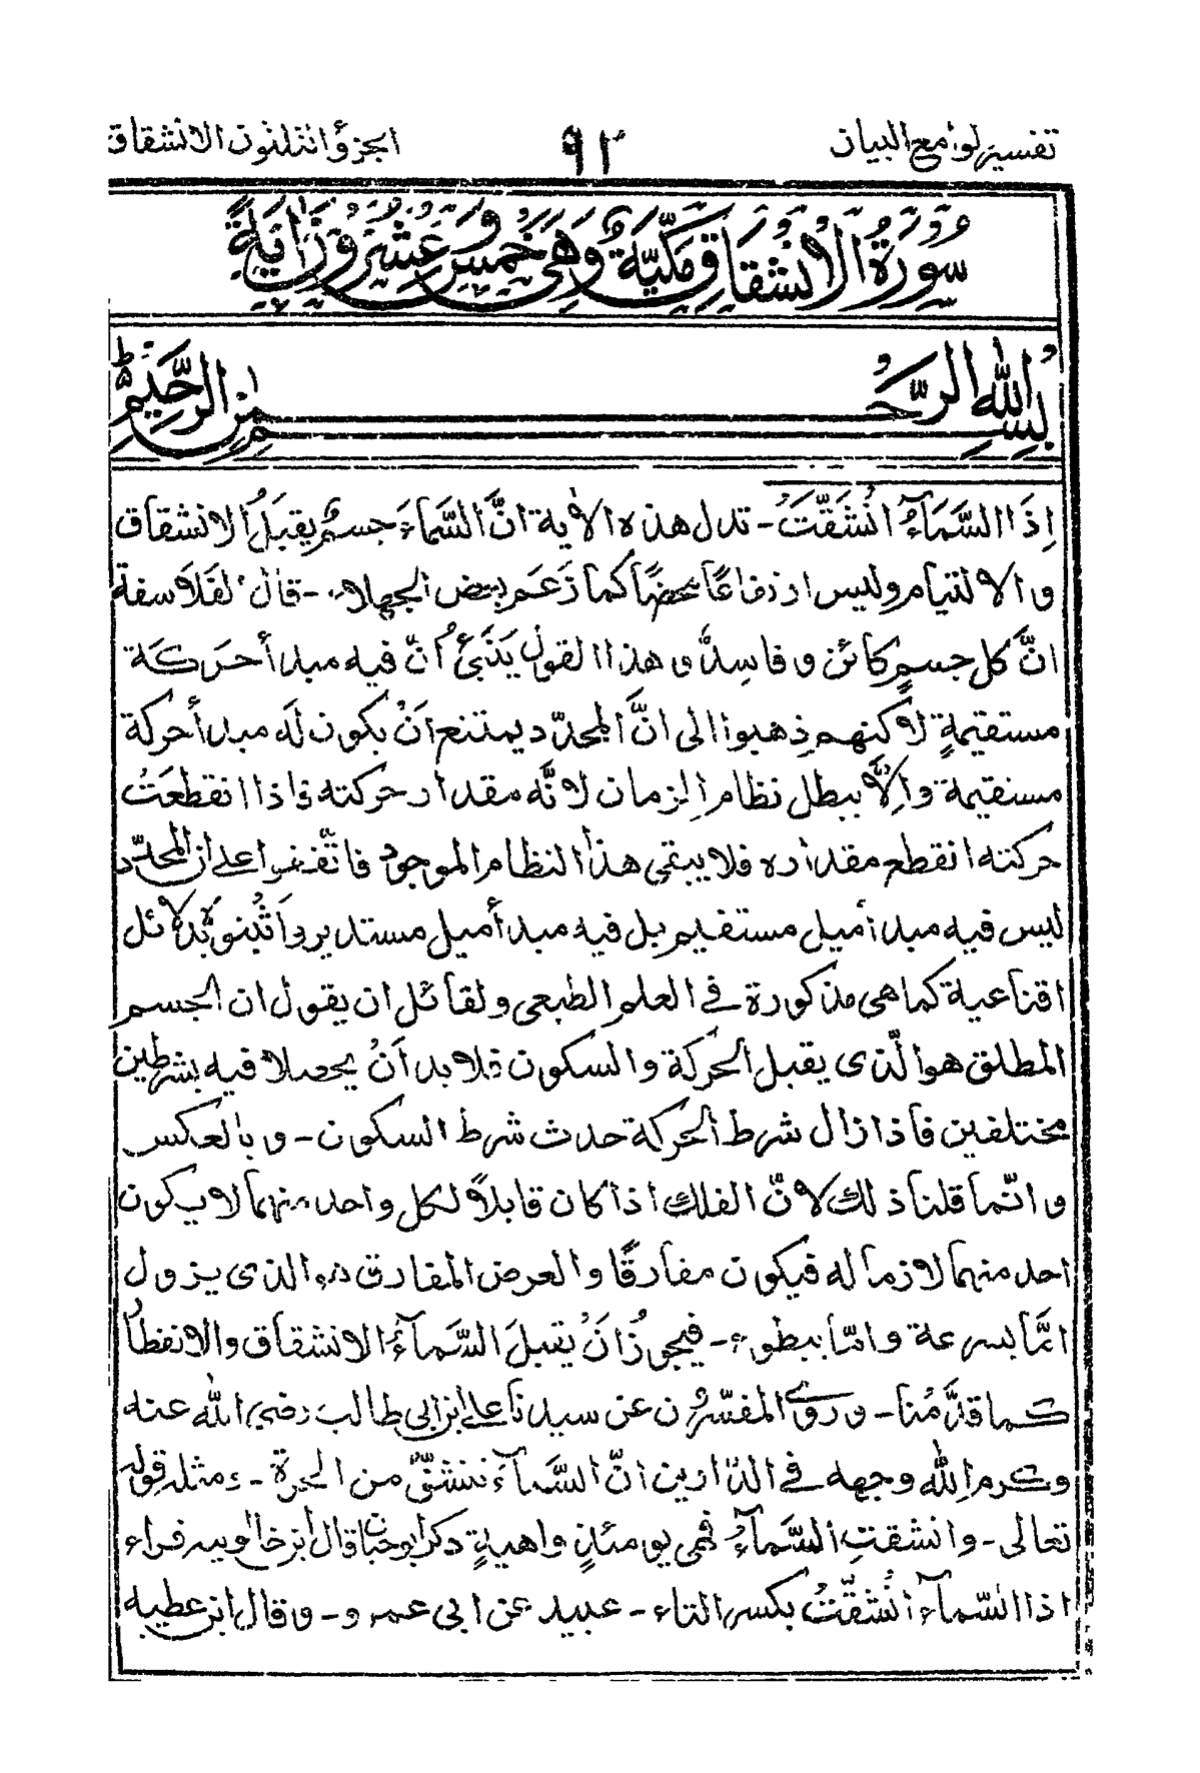 تفسير لوامع البيان ٩٢ الجزؤ الثلثون الانشقاق
سُورَةُ الْاِنْشِقَاقِ مَكِّيَّةٌ وَهِيَ خَمْسٌ وَعِشْرُوْنَ اٰيَةً
بِسْمِ اللهِ الرَّحْمٰنِ الرَّحِيْمِ
اِذَا السَّمَآءُ انْشَقَّتْ - تدل هذه الاٰية انَّ السَّمَاءَ جسمٌ يقبَلُ الانشقاق
والالتيام وليس ارتفاعًا محضًا كما زَعَم بعض الجهلاء - قال الفَلَاسفة
انَّ كل جسمٍ كائن وفاسدٌ وهذا القول يَنْبَئُ انّ فيه مبدأ حَرَكَة
مستقيمةٍ لاكنهم ذهبوا الى انَّ المحدّد يمتنع اَنْ يكون لَه مبدأ حركة
مستقيمة واِلَّا يبطل نظام الزمان لانَّه مقدار حركته فاذا انقطعَتْ
حركته انقطع مقداره فلا يبقى هذا النظام الموجود فاتّفقوا على ان المحدّد
ليس فيه مبدأ ميل مستقيم بل فيه مبدأ ميل مستدير واَثْبتوهُ بدلائل
اقناعية كما هى مذكورة فى العلم الطبعى ولقائل ان يقول ان الجسم
المطلق هو الّذى يقبل الحركة والسكون فلا بد اَنْ يحصلا فيه بشرطين
مختلفين فاذا زال شرط الحركة حدث شرط السكون - وبالعكس
وانّما قلنا ذلك لانّ الفلك اذا كان قابلاً لكل واحد منهما لا يكون
احد منهما لازما له فيكون مفارقًا والعرض المفارق هو الذى يزول
امّا بسرعة وامّا ببطوء - فيجوزُ اَنْ يقبلَ السَّمآءُ الانشقاق والانفطار
كما قدَّمْنا - وروى المفسّرون عن سيدنا على ابن ابى طالب رضى الله عنه
وكرم الله وجهه فى الدّارين انّ السَّمآءَ تنشقُّ من المجرة - ومثله قوله
تعالى - وانشقتِ السَّمآءُ فهى يومئذٍ واهيةٍ ذكر ابو حبان قال ابن خالويه قراء
اذا السّمآء انْشقّتِ بكسر التاء - عبيد عن ابى عمرو - وقال ابن عطيه